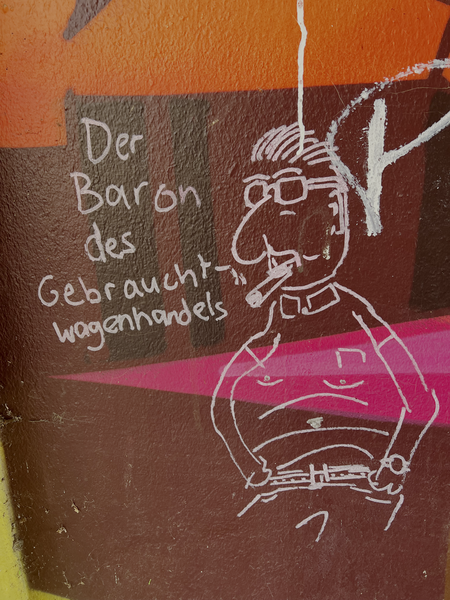 Der
Baron
des
Gebraucht-
wagenhandels